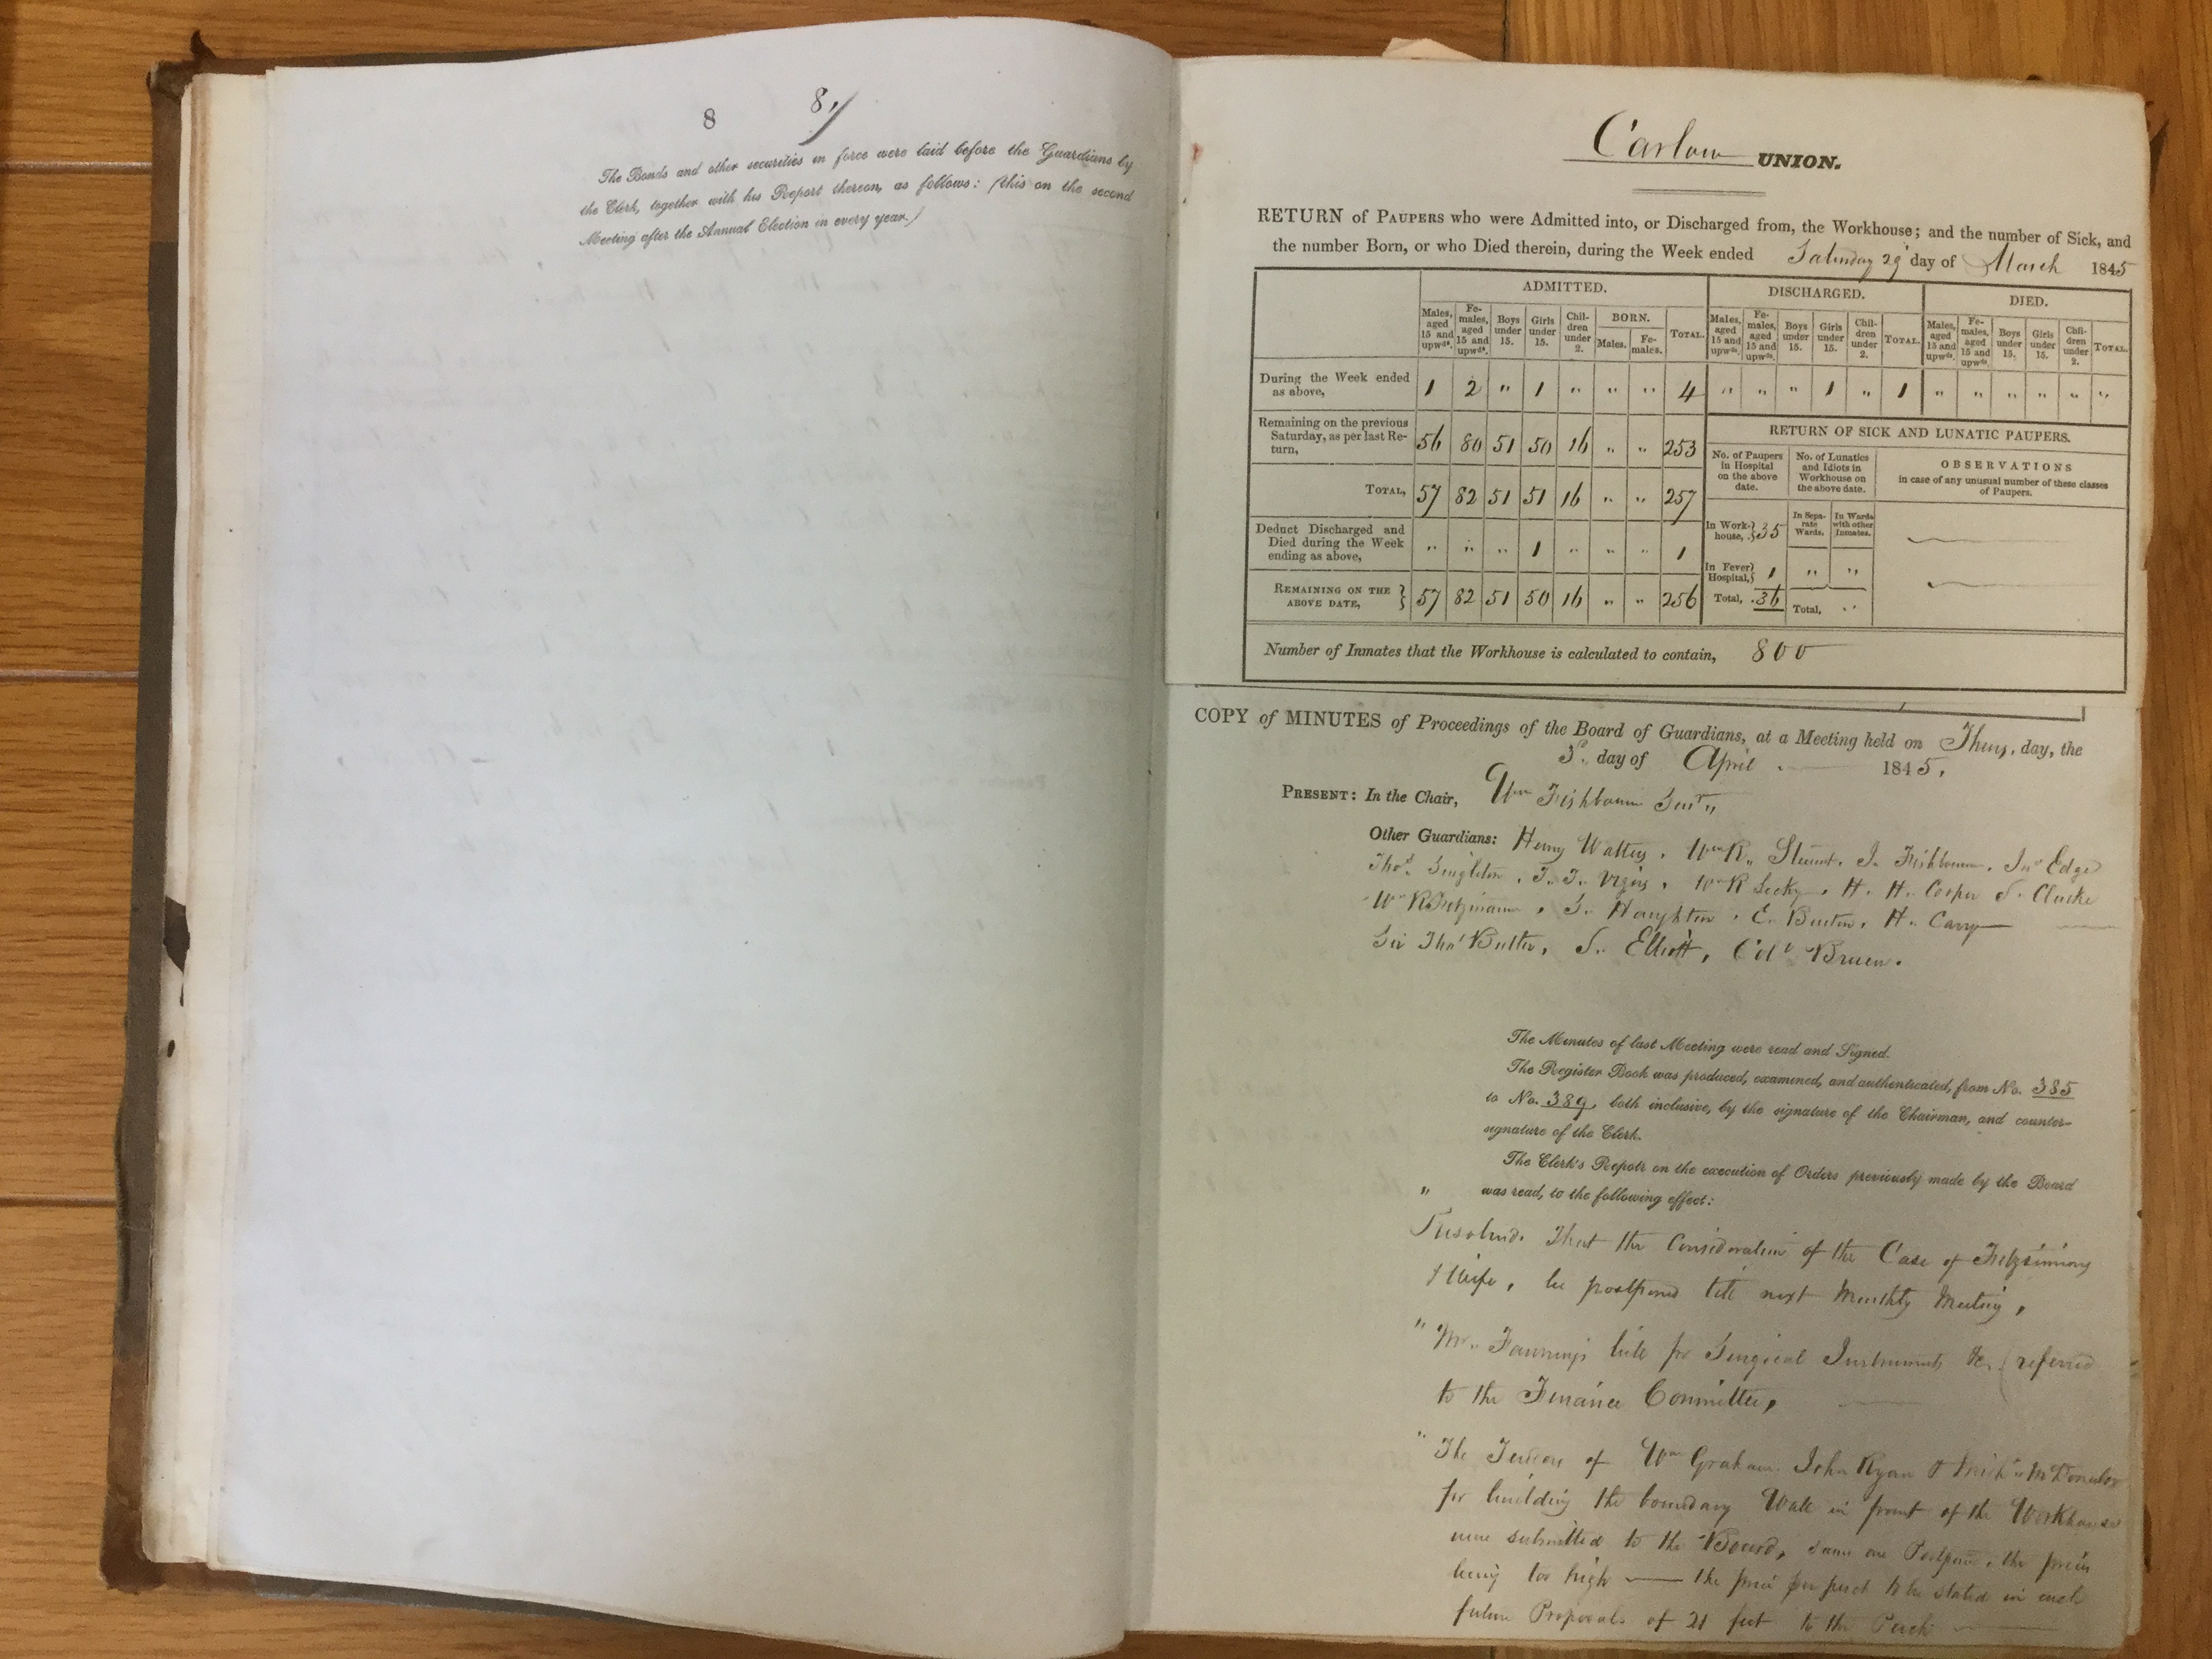 8 8.
The Bonds and other securities in force were laid before the Guardians by
the Clerk, together with his Report thereon, as follows: (this on the second
Meeting after the Annual Election in every year.)
Carlow UNION.
RETURN of PAUPERS who were Admitted into, or Discharged from, the Workhouse; and the number of Sick, and
the number Born, or who Died therein, during the Week ended Saturday 29 day of March 1845
ADMITTED. DISCHARGED. DIED.
Males, aged 15 and upwds. Females, aged 15 and upwds. Boys under 15. Girls under 15. Children under 2. BORN. Males. Females. TOTAL. Males, aged 15 and upwds. Females, aged 15 and upwds. Boys under 15. Girls under 15. Children under 2. TOTAL. Males, aged 15 and upwds. Females, aged 15 and upwds. Boys under 15. Girls under 15. Children under 2. TOTAL.
During the Week ended
as above, 1 2 " 1 " " " 4 " " " 1 " 1 " " " " " "
Remaining on the previous
Saturday, as per last Re-
turn, 56 80 51 50 16 " " 253
TOTAL, 57 82 51 51 16 " " 257
Deduct Discharged and
Died during the Week
ending as above, " " " 1 " " " 1
REMAINING ON THE
ABOVE DATE, } 57 82 51 50 16 " " 256
RETURN OF SICK AND LUNATIC PAUPERS.
No. of Paupers
in Hospital
on the above
date.
No. of Lunatics
and Idiots in
Workhouse on
the above date.
OBSERVATIONS
in case of any unusual number of these classes
of Paupers.
In Sepa-
rate
Wards.
In Wards
with other
Inmates.
In Work-
house, } 35
In Fever
Hospital, } 1 " "
Total, 36 Total, "
Number of Inmates that the Workhouse is calculated to contain, 800
COPY of MINUTES of Proceedings of the Board of Guardians, at a Meeting held on Thurs. day, the
3d. day of April 1845.
PRESENT: In the Chair, Wm Fishbourne Senr
Other Guardians: Henry Watters. Wm R. Stewart. J. Fishbourne. Jno Edge
Thos. Singleton. T. T. Vigors. Wm R Lecky. H. H. Cooper S. Clarke
Wm S. Haughton. E. Burton. H. Carey
Sir Thos Butler, S. Elliott, Coll Bruen.
The Minutes of last Meeting were read and Signed.
The Register Book was produced, examined, and authenticated, from No. 385
to No. 389, both inclusive, by the signature of the Chairman, and counter-
signature of the Clerk.
The Clerk's Repotr on the execution of Orders previously made by the Board
" was read, to the following effect:
Resolved. That the Consideration of the Case of Fitzsimons
& Wife, be postponed till next Monthly Meeting,
" Mr. Fanning's bill for Surgical Instruments &c. referred
to the Finance Committee,
" The Tenders of Wm Graham. John Ryan &
for building the boundary Wall in front of the Workhouse
were submitted to the Board, same are Postpond. the prices
being too high — the price per perch to be stated in each
future Proposals of 21 feet to the Perch